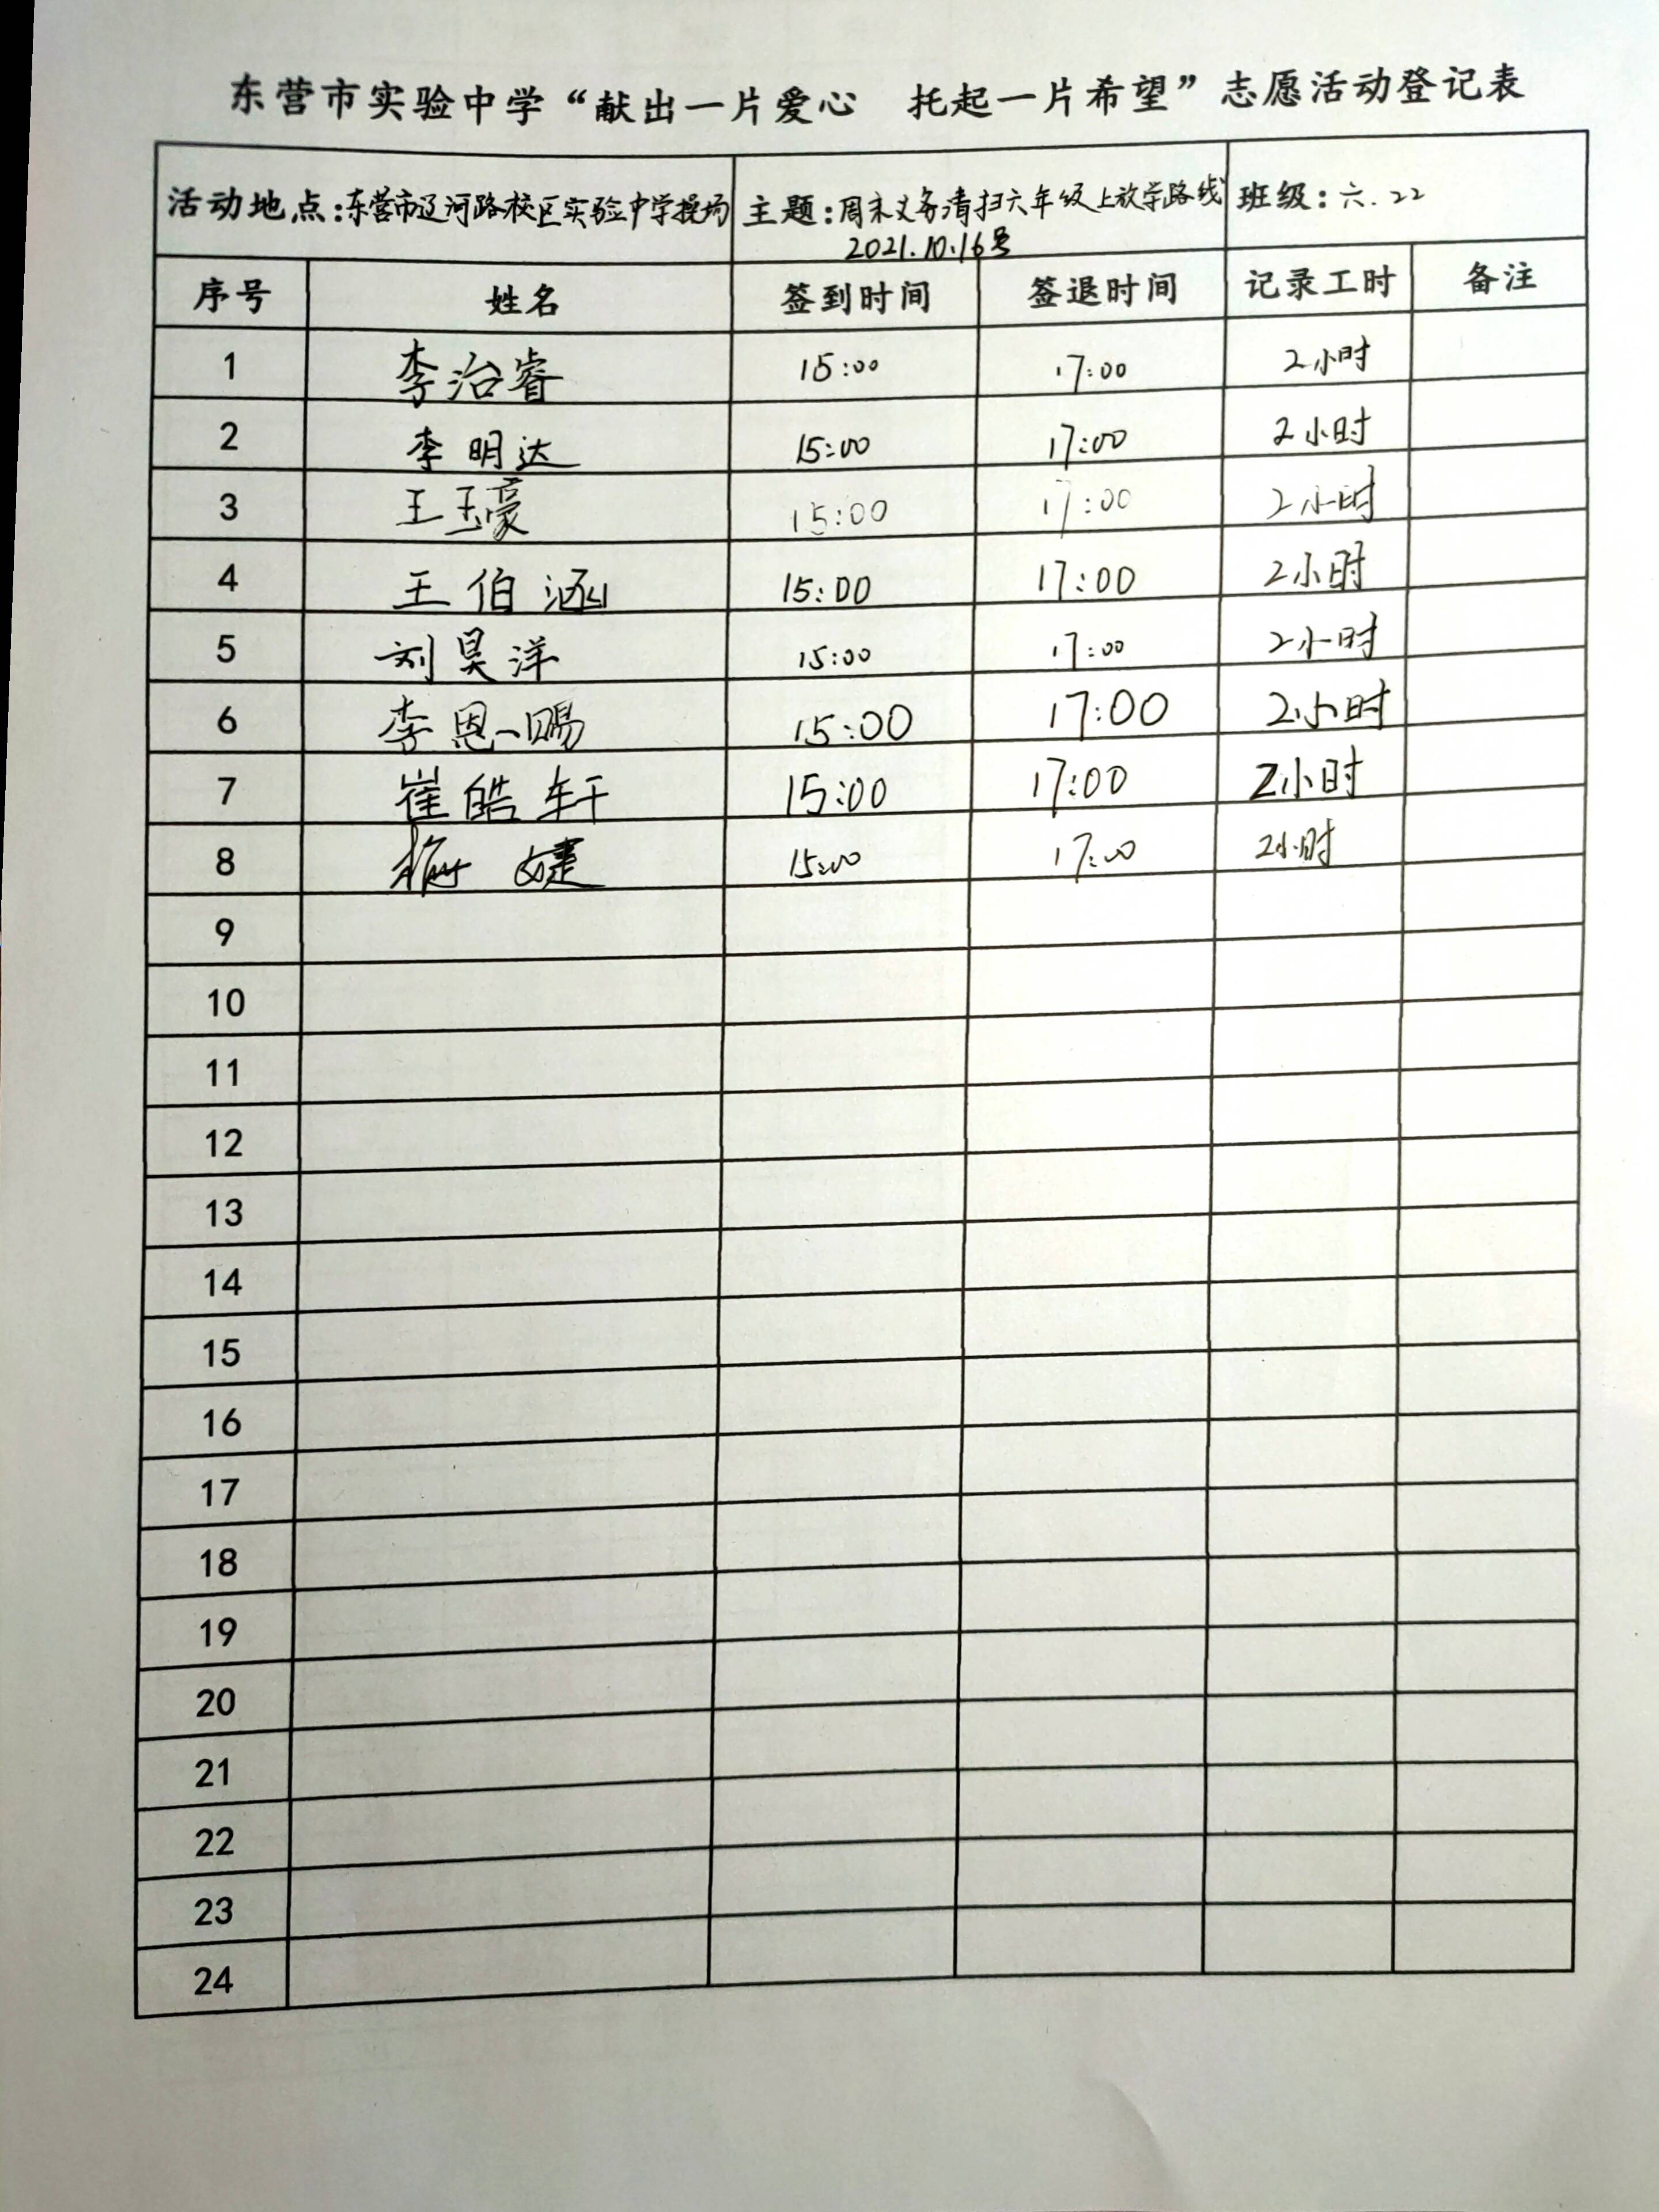 东营市实验中学“献出一片爱心 托起一片希望”志愿活动登记表
活动地点:东营市辽河路校区实验中学操场 主题:周末义务清扫六年级上放学路线 班级:六.22
2021.10.16号
序号 姓名 签到时间 签退时间 记录工时 备注
1 李治睿 15:00 17:00 2小时
2 李明达 15:00 17:00 2小时
3 王玉豪 15:00 17:00 2小时
4 王伯涵 15:00 17:00 2小时
5 刘昊洋 15:00 17:00 2小时
6 李恩赐 15:00 17:00 2小时
7 崔皓轩 15:00 17:00 2小时
8 梅婕 15:00 17:00 2小时
9
10
11
12
13
14
15
16
17
18
19
20
21
22
23
24